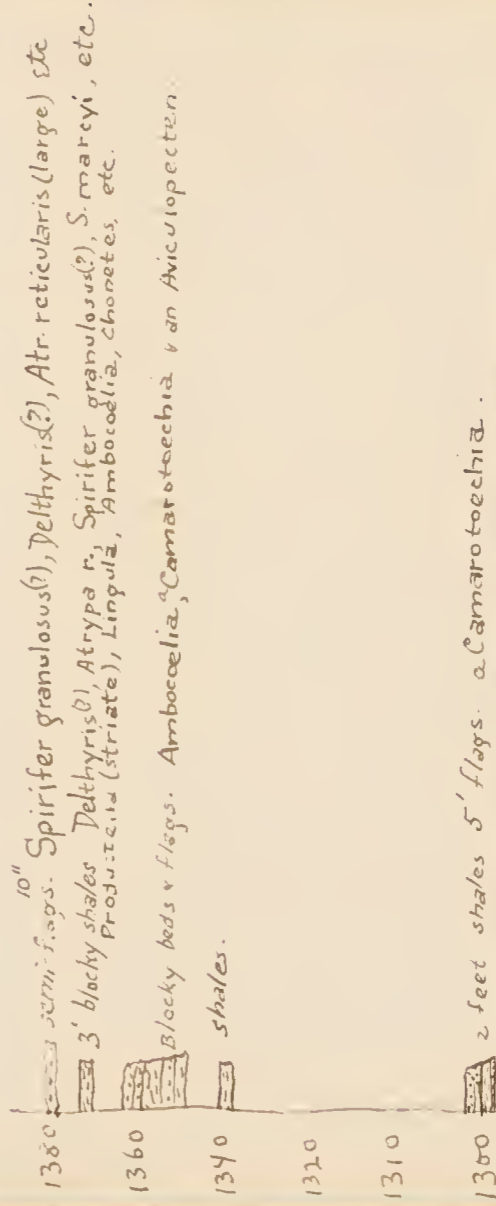 1380 10" semi-flags. Spirifer granulosus(?), Delthyris(?), Atr. reticularis (large) etc
3' blocky shales Delthyris(?), Atrypa r., Spirifer granulosus(?), S. marcyi, etc.
Productella (striate), Lingula, Ambocoelia, Chonetes, etc.
1360
Blocky beds & flags. Ambocoelia, a Camarotoechia & an Aviculopecten.
1340 shales.
1320
1310
1300 2 feet shales 5' flags. a Camarotoechia.